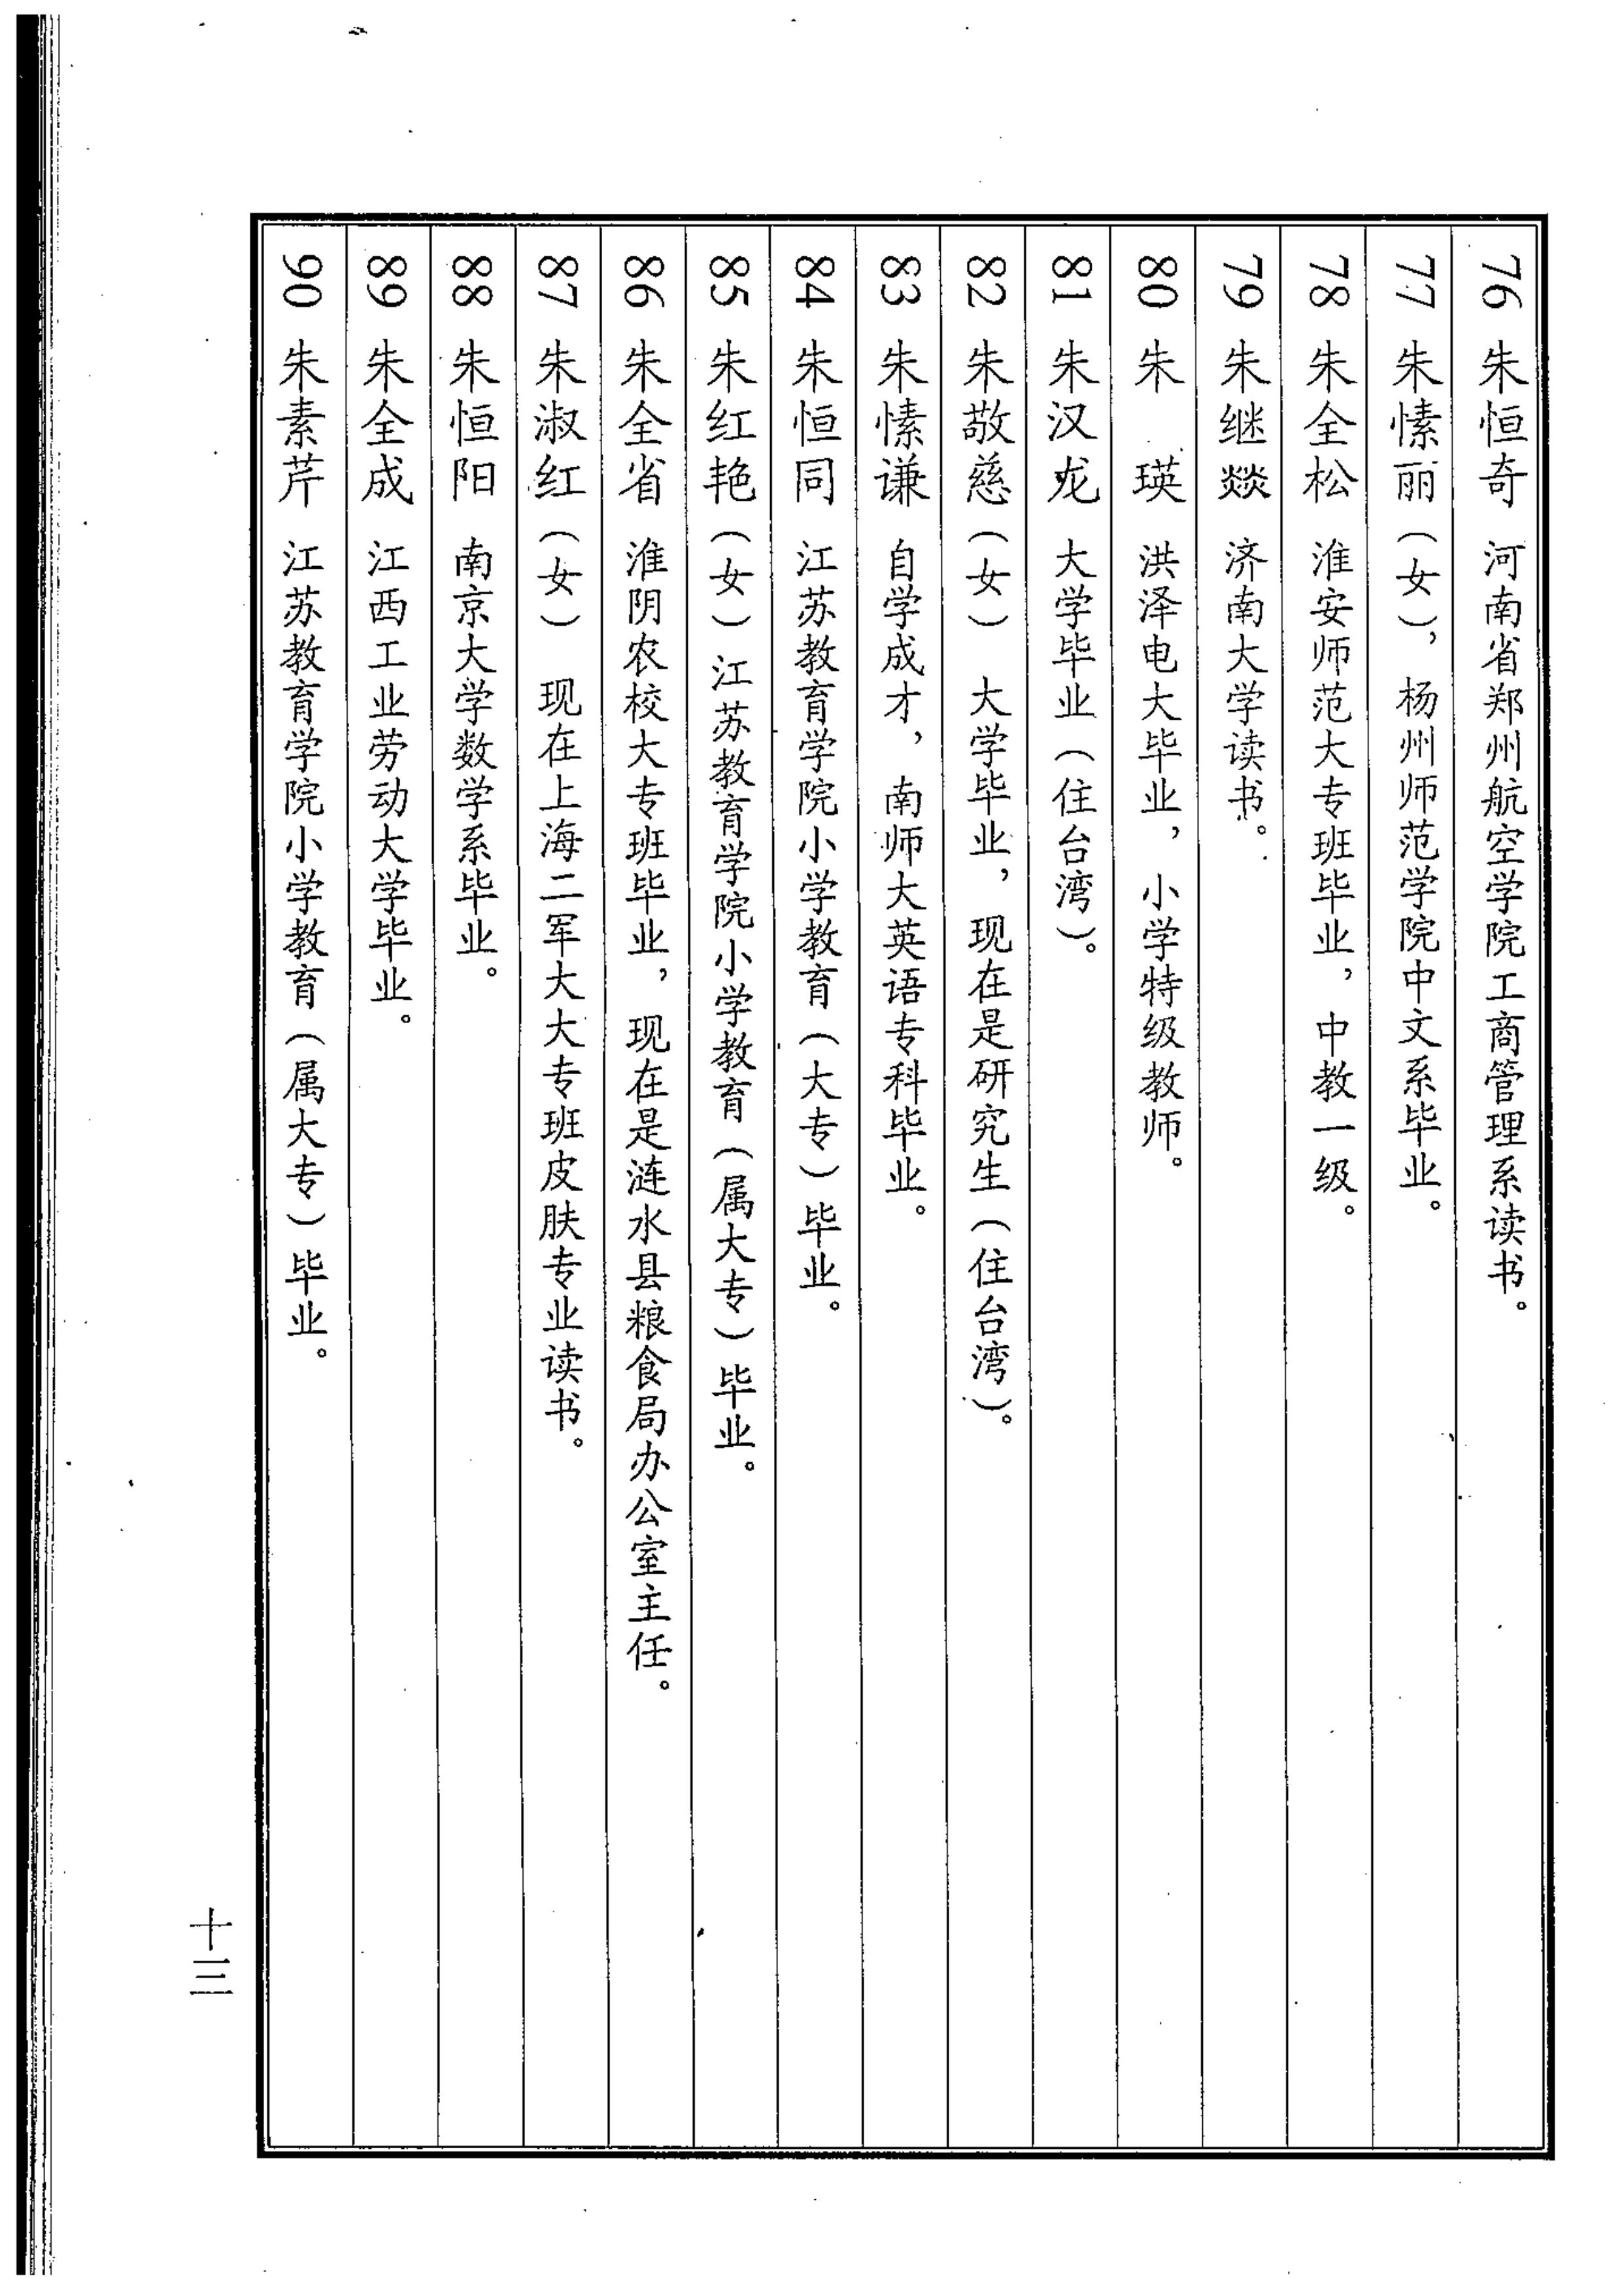 76 朱恒奇 河南省郑州航空学院工商管理系读书。
77 朱愫丽（女），杨州师范学院中文系毕业。
78 朱全松 淮安师范大专班毕业，中教一级。
79 朱继燚 济南大学读书。
80 朱 瑛 洪泽电大毕业，小学特级教师。
81 朱汉龙 大学毕业（住台湾）。
82 朱敬慈（女） 大学毕业，现在是研究生（住台湾）。
83 朱愫谦 自学成才，南师大英语专科毕业。
84 朱恒同 江苏教育学院小学教育（大专）毕业。
85 朱红艳（女）江苏教育学院小学教育（属大专）毕业。
86 朱全省 淮阴农校大专班毕业，现在是涟水县粮食局办公室主任。
87 朱淑红（女） 现在上海二军大大专班皮肤专业读书。
88 朱恒阳 南京大学数学系毕业。
89 朱全成 江西工业劳动大学毕业。
90 朱素芹 江苏教育学院小学教育（属大专）毕业。
十三